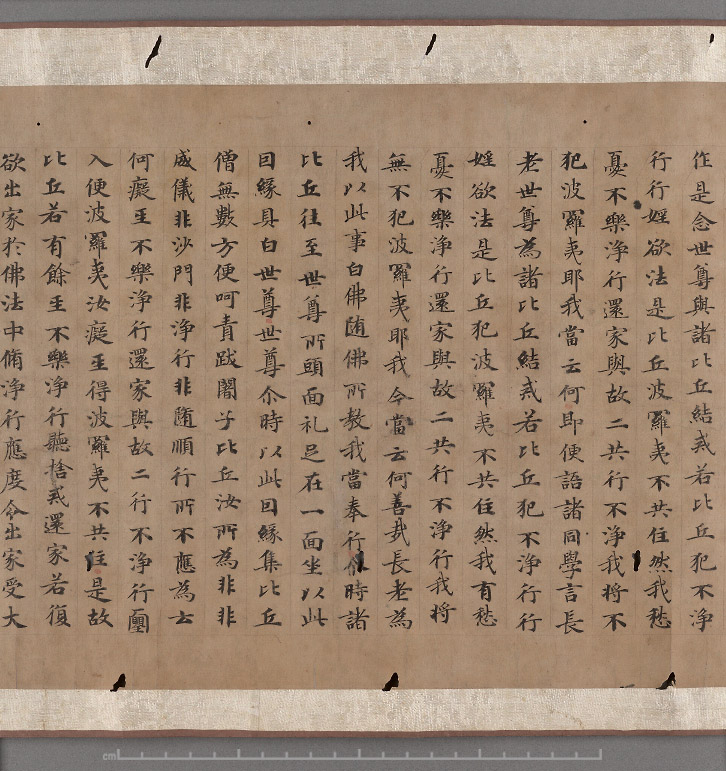 作是念世尊與諸比丘結戒若比丘犯不淨
行行婬欲法是比丘波羅夷不共住然我愁
憂不樂淨行還家與故二共行不淨我將不
犯波羅夷耶我當云何即便語諸同學言長
老世尊為諸比丘結戒若比丘犯不淨行行
婬欲法是比丘犯波羅夷不共住然我有愁
憂不樂淨行還家與故二共行不淨行我將
無不犯波羅夷耶我今當云何善哉長老為
我以此事白佛随佛所教我當奉行尒時諸
比丘往至世尊所頭面礼足在一面坐以此
回緣具白世尊世尊尒時以此回緣集比丘
僧無數方便呵責跋闍子比丘汝所為非非
威儀非沙門非淨行非随順行所不應為云
何癡𤯔不樂淨行還家與故二行不淨行𤯔
入便波羅夷汝癡𤯔得波羅夷不共住是故
比丘若有餘𤯔不樂淨行聽捨戒還家若復
欲出家於佛法中脩淨行應度令出家受大
cm